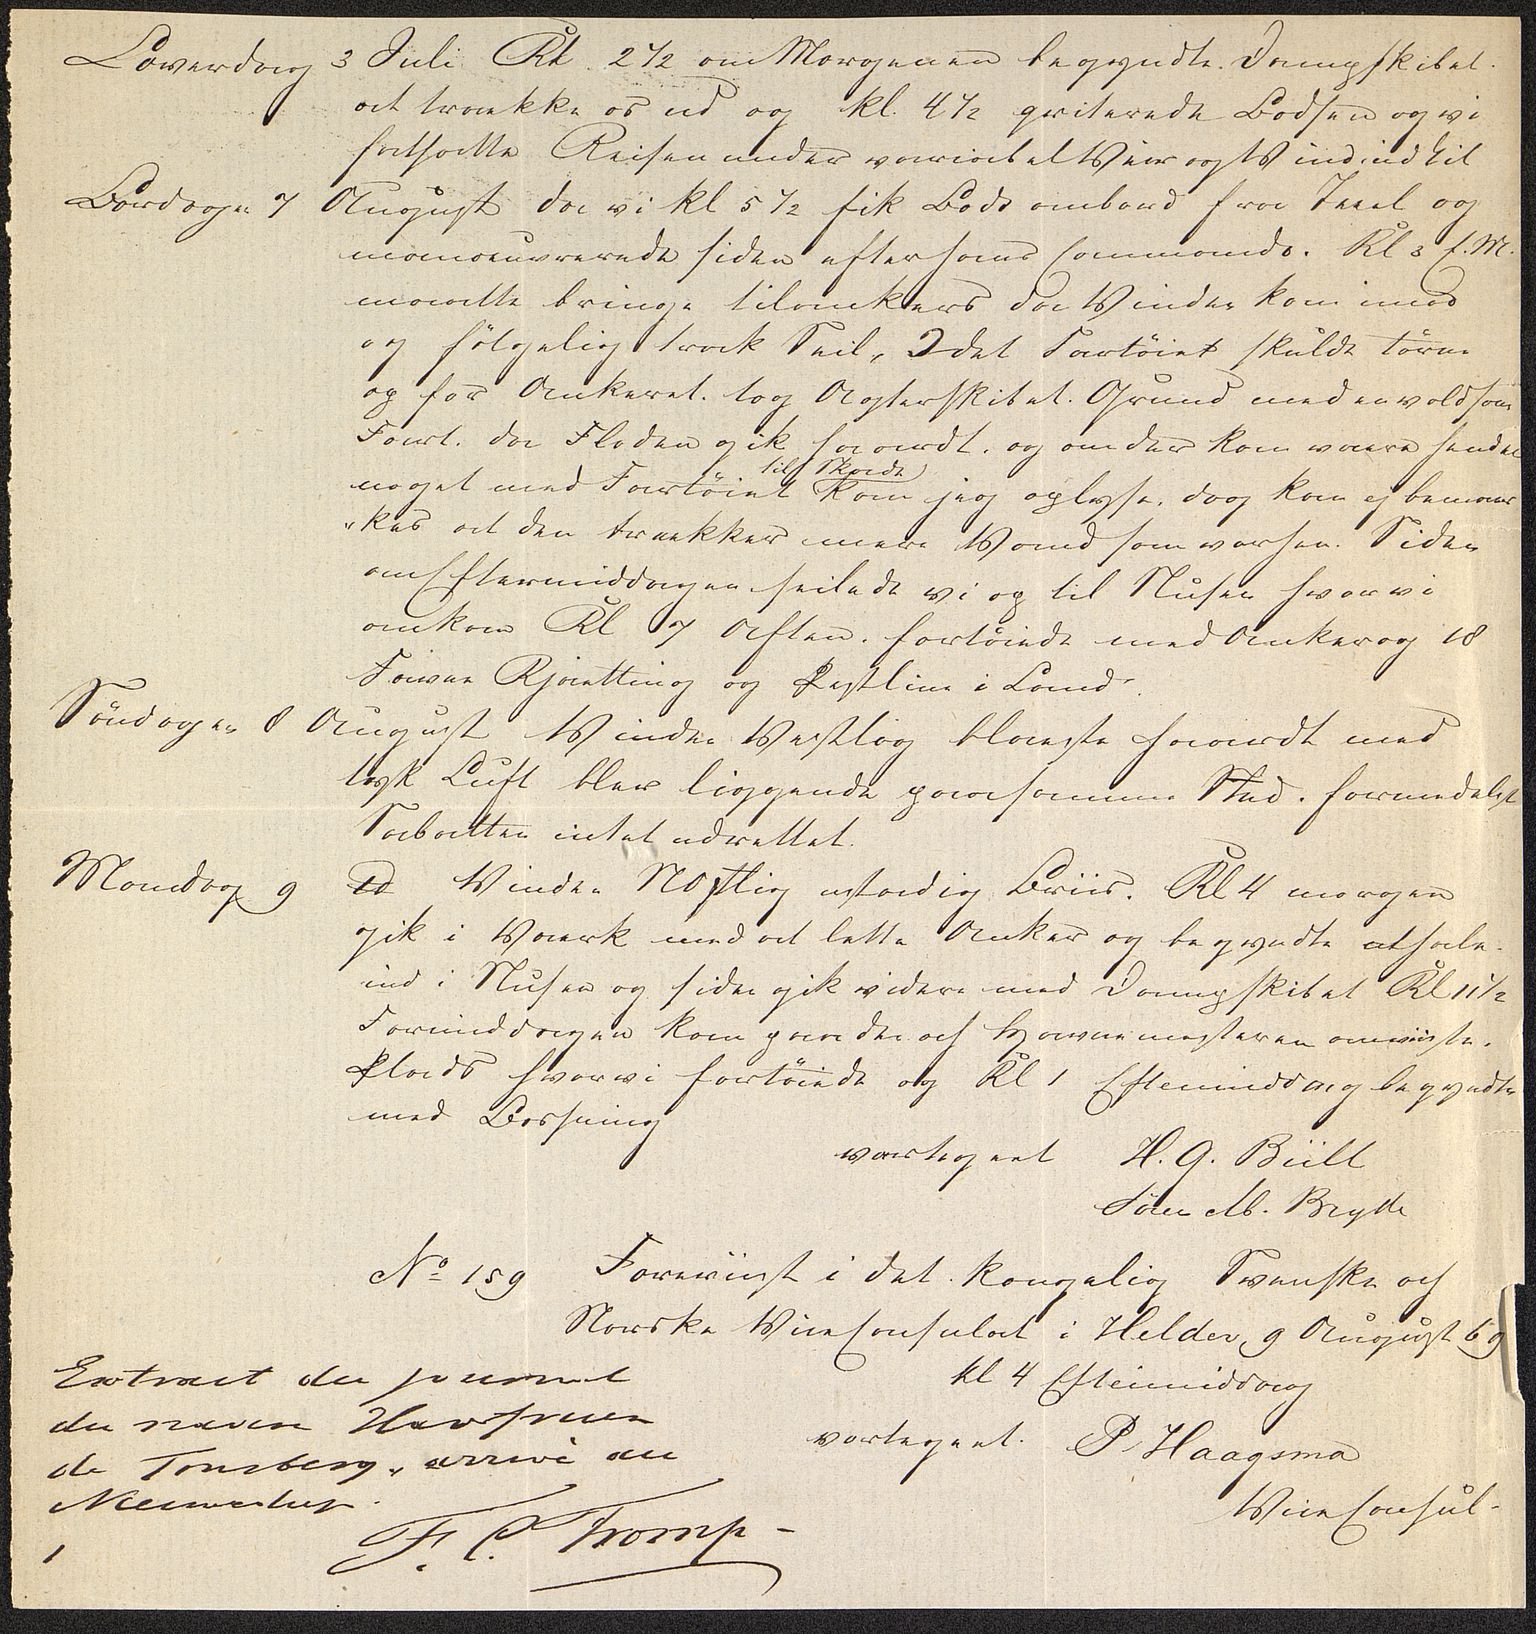 Löverdag 3 Juli Kl. 2 1/2 om Morgenen begyndte Dampskibet
at trække os ud og kl. 4 1/2 qviterede Lodsen og vi
fortsatte Reisen under variabel Veir og Vind indtil
Lördagen 7 August da vi kl 5 1/2 fik Lods ombord fra Texel og
manoeuvrerede siden efter hans Commando. Kl 3 f. M.
maatte bringe tilankers da Vinden kom imod
og fölgelig trak Seil, Idet Fartöiet skulde törne
op for Ankeret tog Agterskibet Grund med en voldsom
Fart. da Floden gik haardt. og om der kan være hendet
noget med Fartöiet til Skade kan jeg oplyse. dog kan ej bemær
"kes at den trækker mere Vand som varsen. Siden
om Eftermiddagen seilede vi op til Slusen hvor vi
ankom Kl 7 Aften. fortöiede med Anker og 18
Favne Kjætting og Pestline i Land.
Söndagen 8 August Vinden Vestlig blæste haardt med
tyk Luft blev liggende paa samme Sted. formedelst
Sabatten intet udrettet.
Mandag 9 Id Vinden NOstlig ustadig Briis. Kl 4 morgen
gik i Værk med at lette Anker og begyndte at hale
ind i Slusen og siden gik videre med Dampskibet Kl 11 1/2
Formiddagen kom paa den af Havnemesteren anviiste
Plads hvor vi fortöiede og Kl 1 Eftermiddag begyndte
med Losning
vartegnet H. G. Büll
Sören Ab. Bryde
No 159 Foreviist i det kongelig Svenske och
Norske Vice Consulat i Helder, 9 August 69
kl 4 Eftermiddag
vartegnet P. Haagsma
Vice Consul
Extract du journal
du navire Havfruen
de Tonsberg, arrivé au
Nieuwediep.
F. C. Tromp